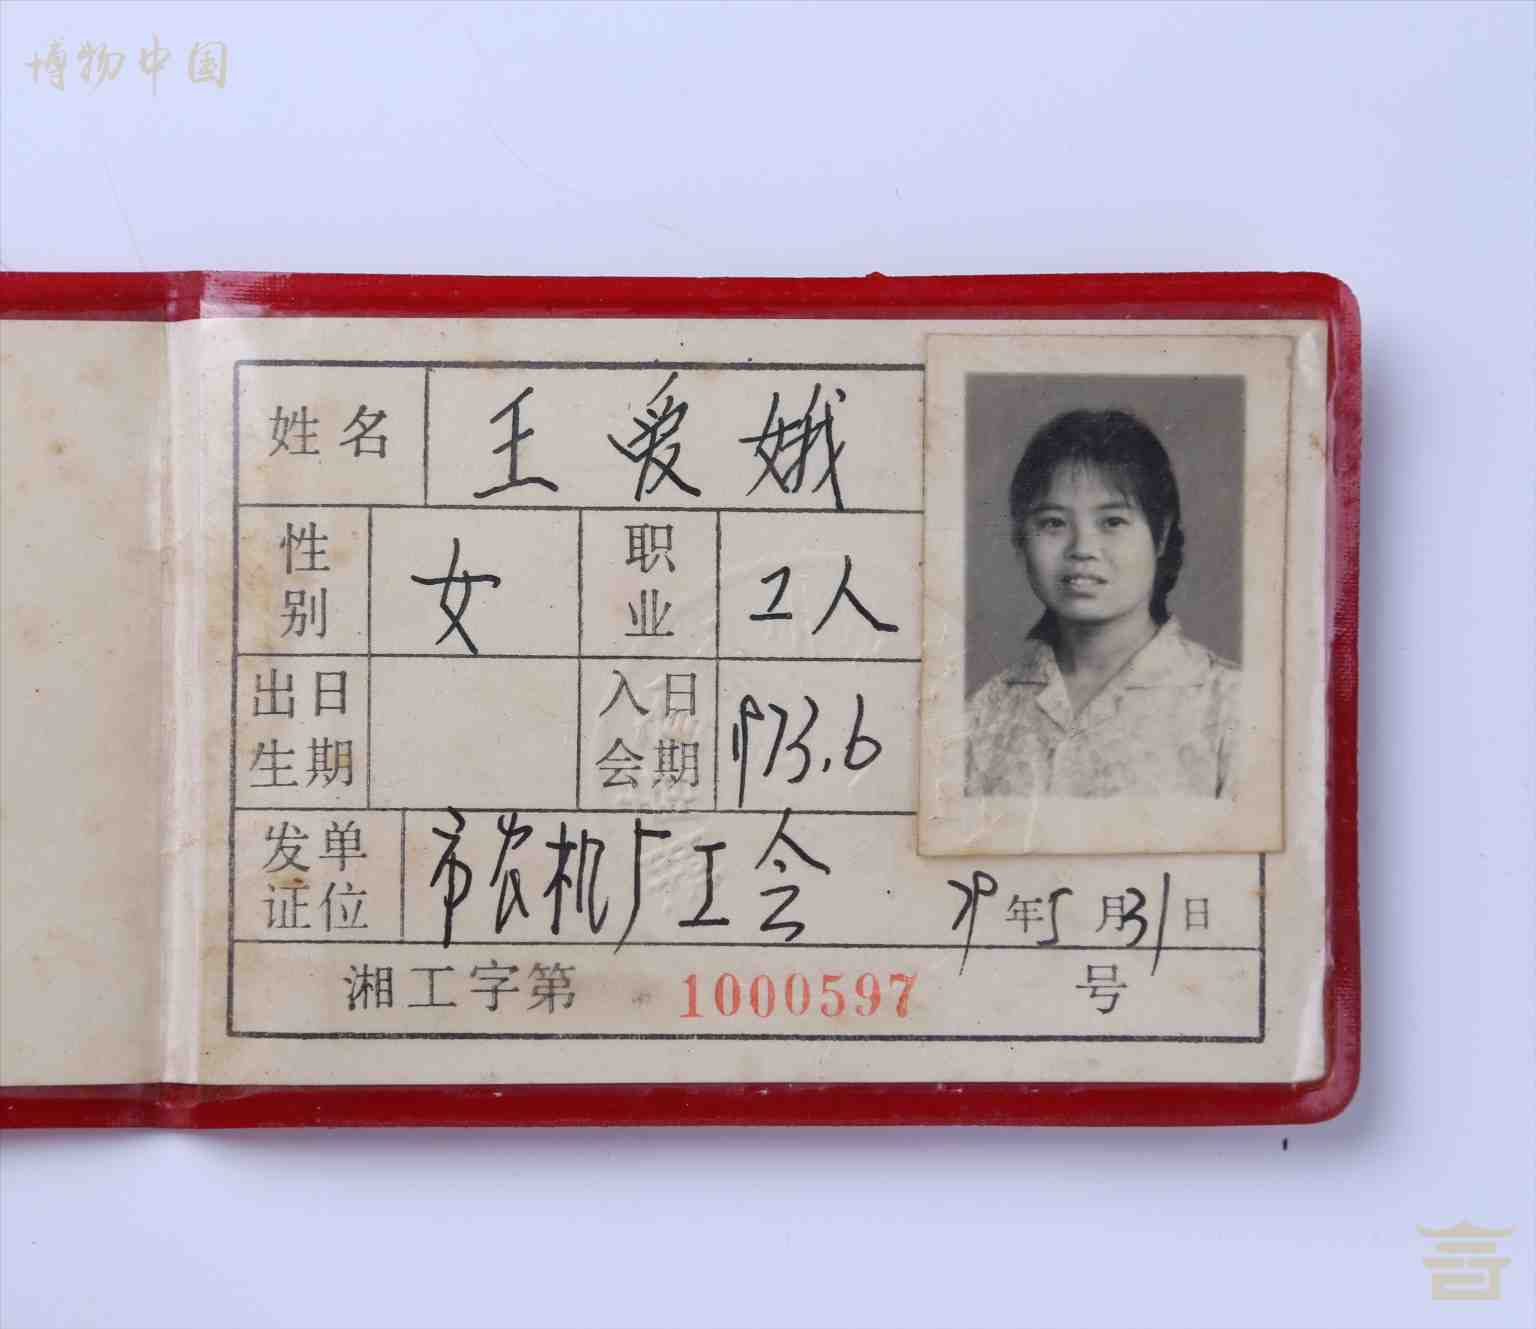 博物中国
姓名 王爱娥
性别 女 职业 工人
出生日期 入会日期 1973.6
发证单位 市农机厂工会 79年5月31日
湘工字第 1000597 号